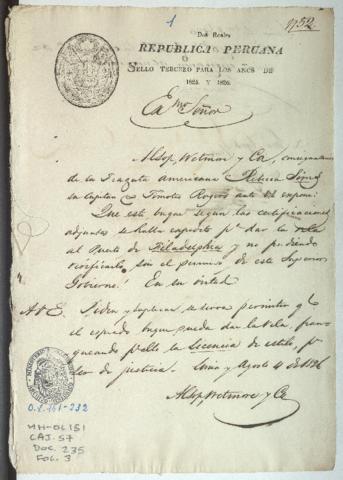 1
1752
Dos Reales
REPUBLICA PERUANA
SELLO TERCERO PARA LOS AÑOS DE
1825. Y 1826.
Exmo Señor
Alsop, Wetmore y Ca, consignatarios
de la Fragata Americana Rebeca Sims
su Capitan Timoteo Rogers ante VE expone:
Que este buque segun las certificaciones
adjuntas se halla expedito pa dar la vela
al Puerto de Philadelphia y no pudiendo
verificarlo sin el permiso de este Supremo
Gobierno: En su virtud
A VE. Piden y suplican se sirva permitir qe
el espresado buque pueda dar la vela, fran
queando pa ello la licencia de estilo, pr
ser de justicia. Lima y Agosto 4 de 1826
Alsop, Wetmore y Ca
O.L. 151-232
MH-OL 151
CAJ. 57
DOC. 235
FOL. 3